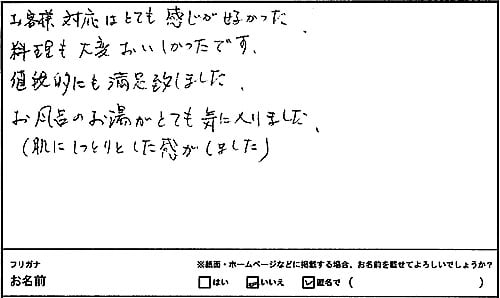 お客様対応はとても感じが好かった、
料理も大変おいしかったです、
値段的にも満足致しました、
お風呂のお湯がとても気に入りました、
(肌にしっとりとした感がしました)
フリガナ
お名前
※紙面・ホームページなどに掲載する場合、お名前を載せてよろしいでしょうか?
□はい ☑いいえ ☑匿名で ( )